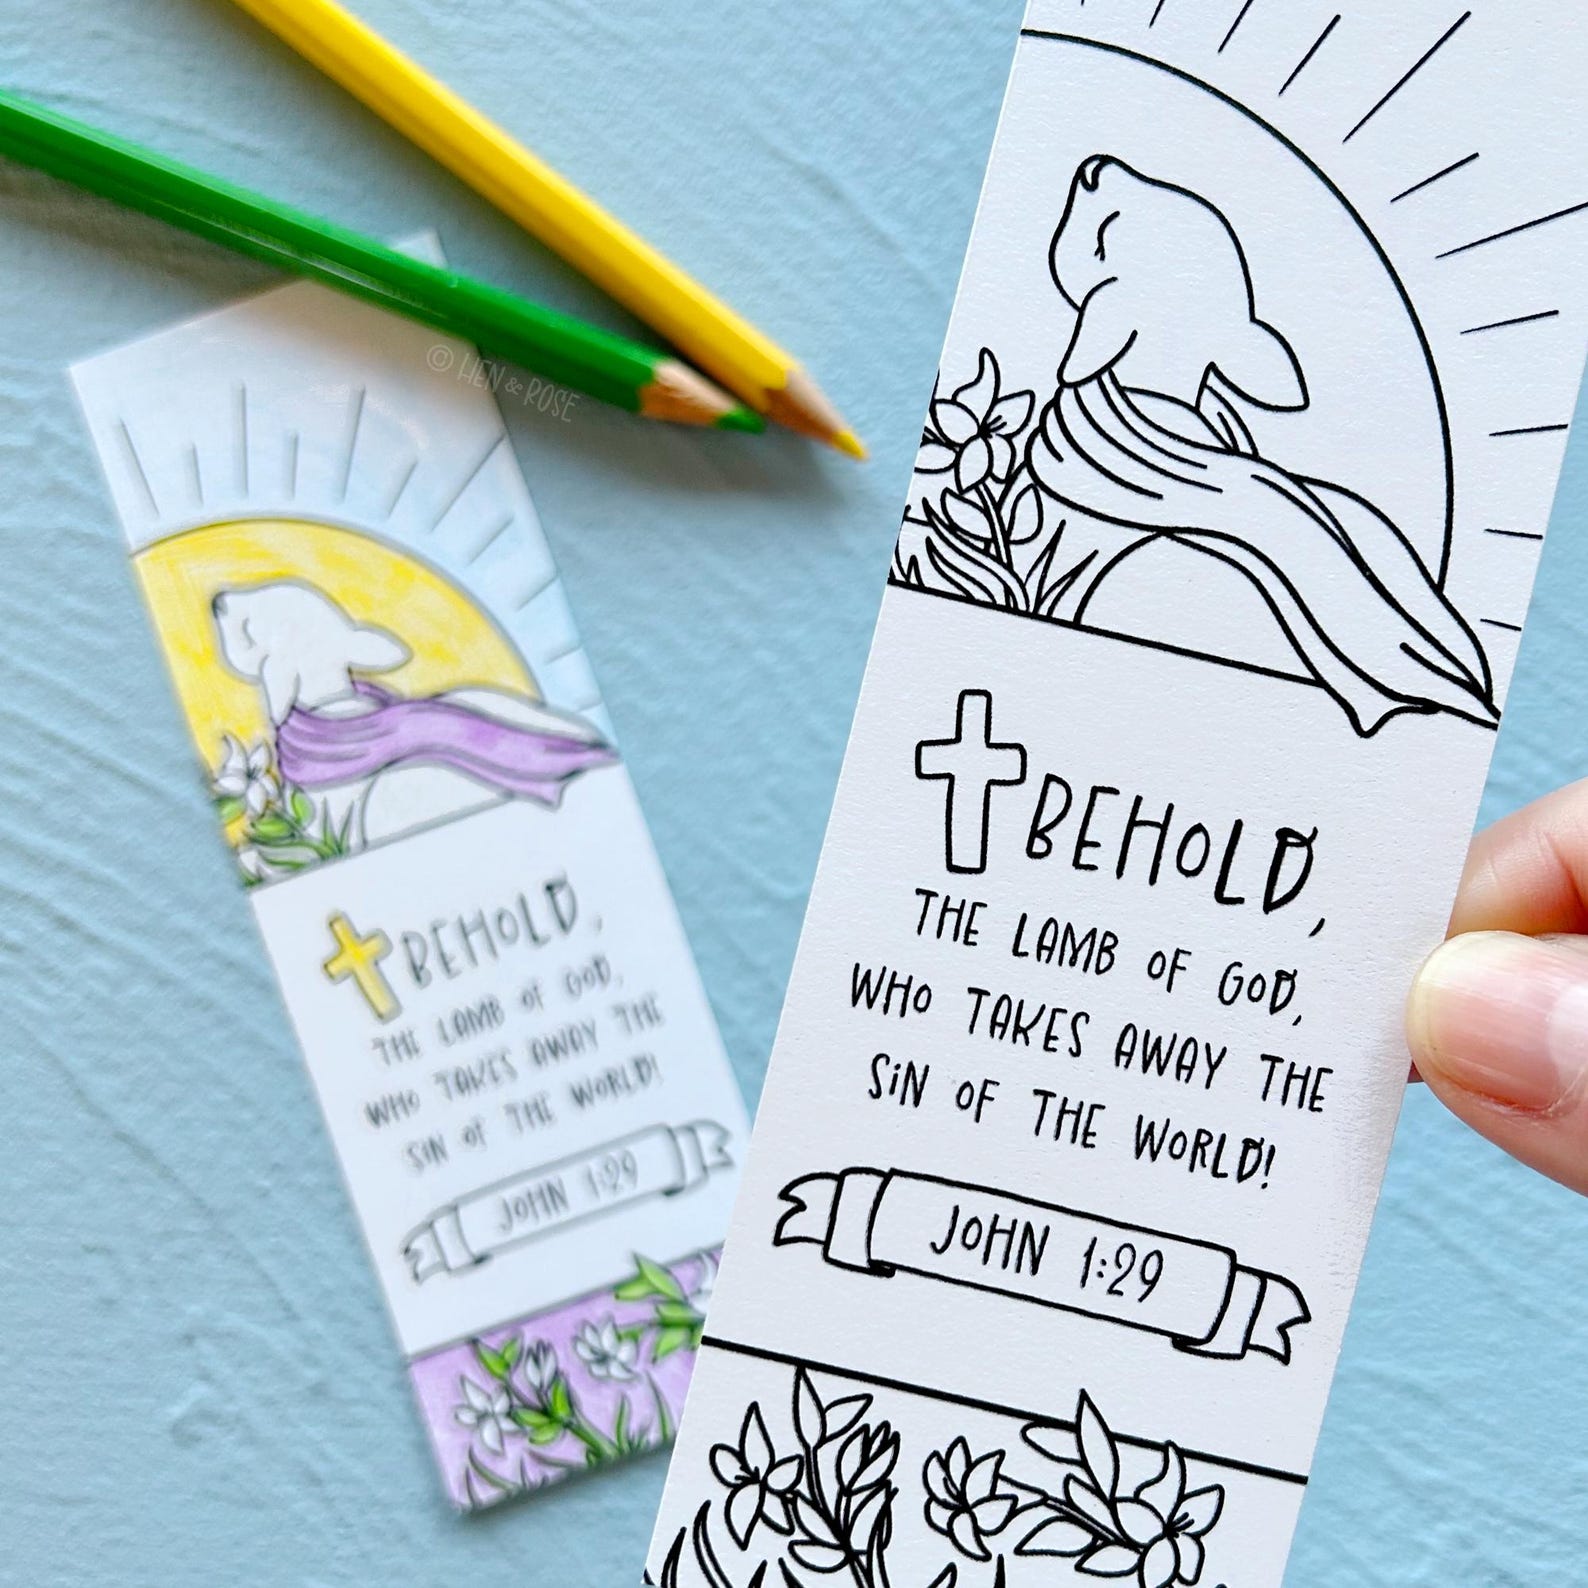 © HEN & ROSE
BEHOLD,
THE LAMB OF GOD,
WHO TAKES AWAY THE
SIN OF THE WORLD!
JOHN 1:29
BEHOLD,
THE LAMB OF GOD,
WHO TAKES AWAY THE
SIN OF THE WORLD!
JOHN 1:29